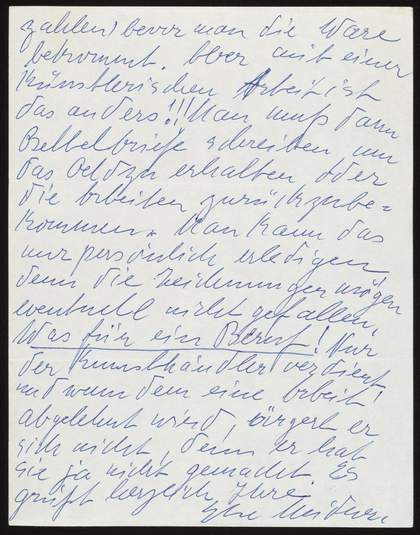 zahlen) bevor man die Ware
bekommt. Aber mit einer
künstlerischen Arbeit ist
das anders!!! Man muß dann
Bettelbriefe schreiben um
das Geld zu erhalten oder
die Arbeiten zurückzube=
kommen. Man kann das
nur persönlich erledigen
denn die Zeichnungen mögen
eventuell nicht gefallen.
Was für ein Beruf! Nur
der Kunsthändler verdient!
und wenn dem eine Arbeit
abgelehnt wird, ärgert er
sich nicht, denn er hat
sie ja nicht gemacht. Es
grüßt herzlich Ihre